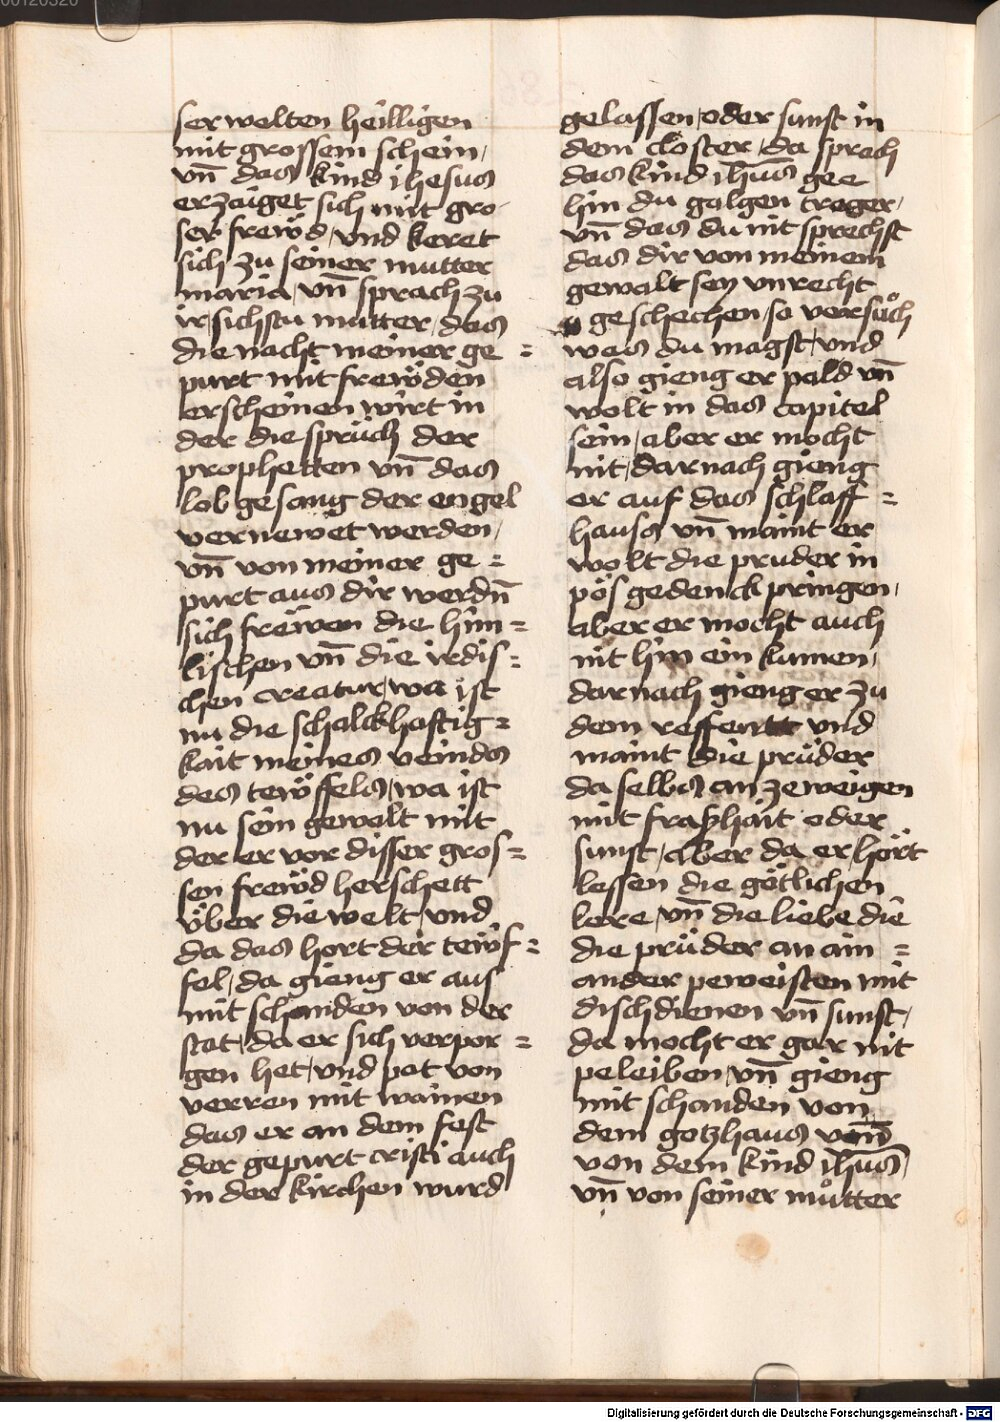 ser welten heilligen
mit grossem schein,
vn̄ das kind ihesus
erzaiget sich mit gro-
ser frewd, vnd keret
sich zu seiner mutter
maria, vn̄ sprach zu
ir, sichstu mutter, das
die nacht meiner ge =
purt mit frewden
erscheinen wirt in
der die sprüch der
prophetten vn̄ das
lobgesang der engel
vernewet werden,
vn̄ von meiner ge =
purt aus dir werdn̄
sich frewen die him=
lischen vn̄ die irdis=
chen creatur, wa ist
nu die schalckhaftig=
kait meines veinds
des tewffels, wa ist
nu sein gewalt mit
der er vor disser gros=
sen frewd herschett
über die welt vnd
da das hort der tewf=
fel, da gieng er aus
mit schanden von der
stat, da er sich verpor =
gen het, vnd pat von
verren mit wainen
das er an dem fest
der gepurt cristi auch
in der kirchen wurd
gelassen, oder sunst in
dem closter, da sprach
das kind ih̄us gee
hin du galgen treger,
vn̄ das du nit sprechst
das dir von meinem
gewalt sey vnrecht
geschechen, so versuͦch
was du magst, vnd
also gieng er pald vn̄
wolt in das capitel
sein, aber er mocht
nit, darnach gieng
er auf das schlaff =
haus vn̄ maint er
wolt die pruder in
pös gedenck pringen,
aber er mocht auch
nit hin ein kumen,
darnach gieng er zu
dem reffentt vnd
maint die prüder
da selbs an zeweigen
mit fraßhait oder
sunst, aber da er hört
lessen die götlichen
lere, vn̄ die liebe die
die prüder an ain =
ander peweisten mit
dischdienen vn̄ sunst,
da mocht er gar nit
peleiben, vn̄ gieng
mit schanden von
dem gotzhaus
von dem kind ih̄us,
vn̄ von seiner muͦtter
Digitalisierung gefördert durch die Deutsche Forschungsgemeinschaft - DFG